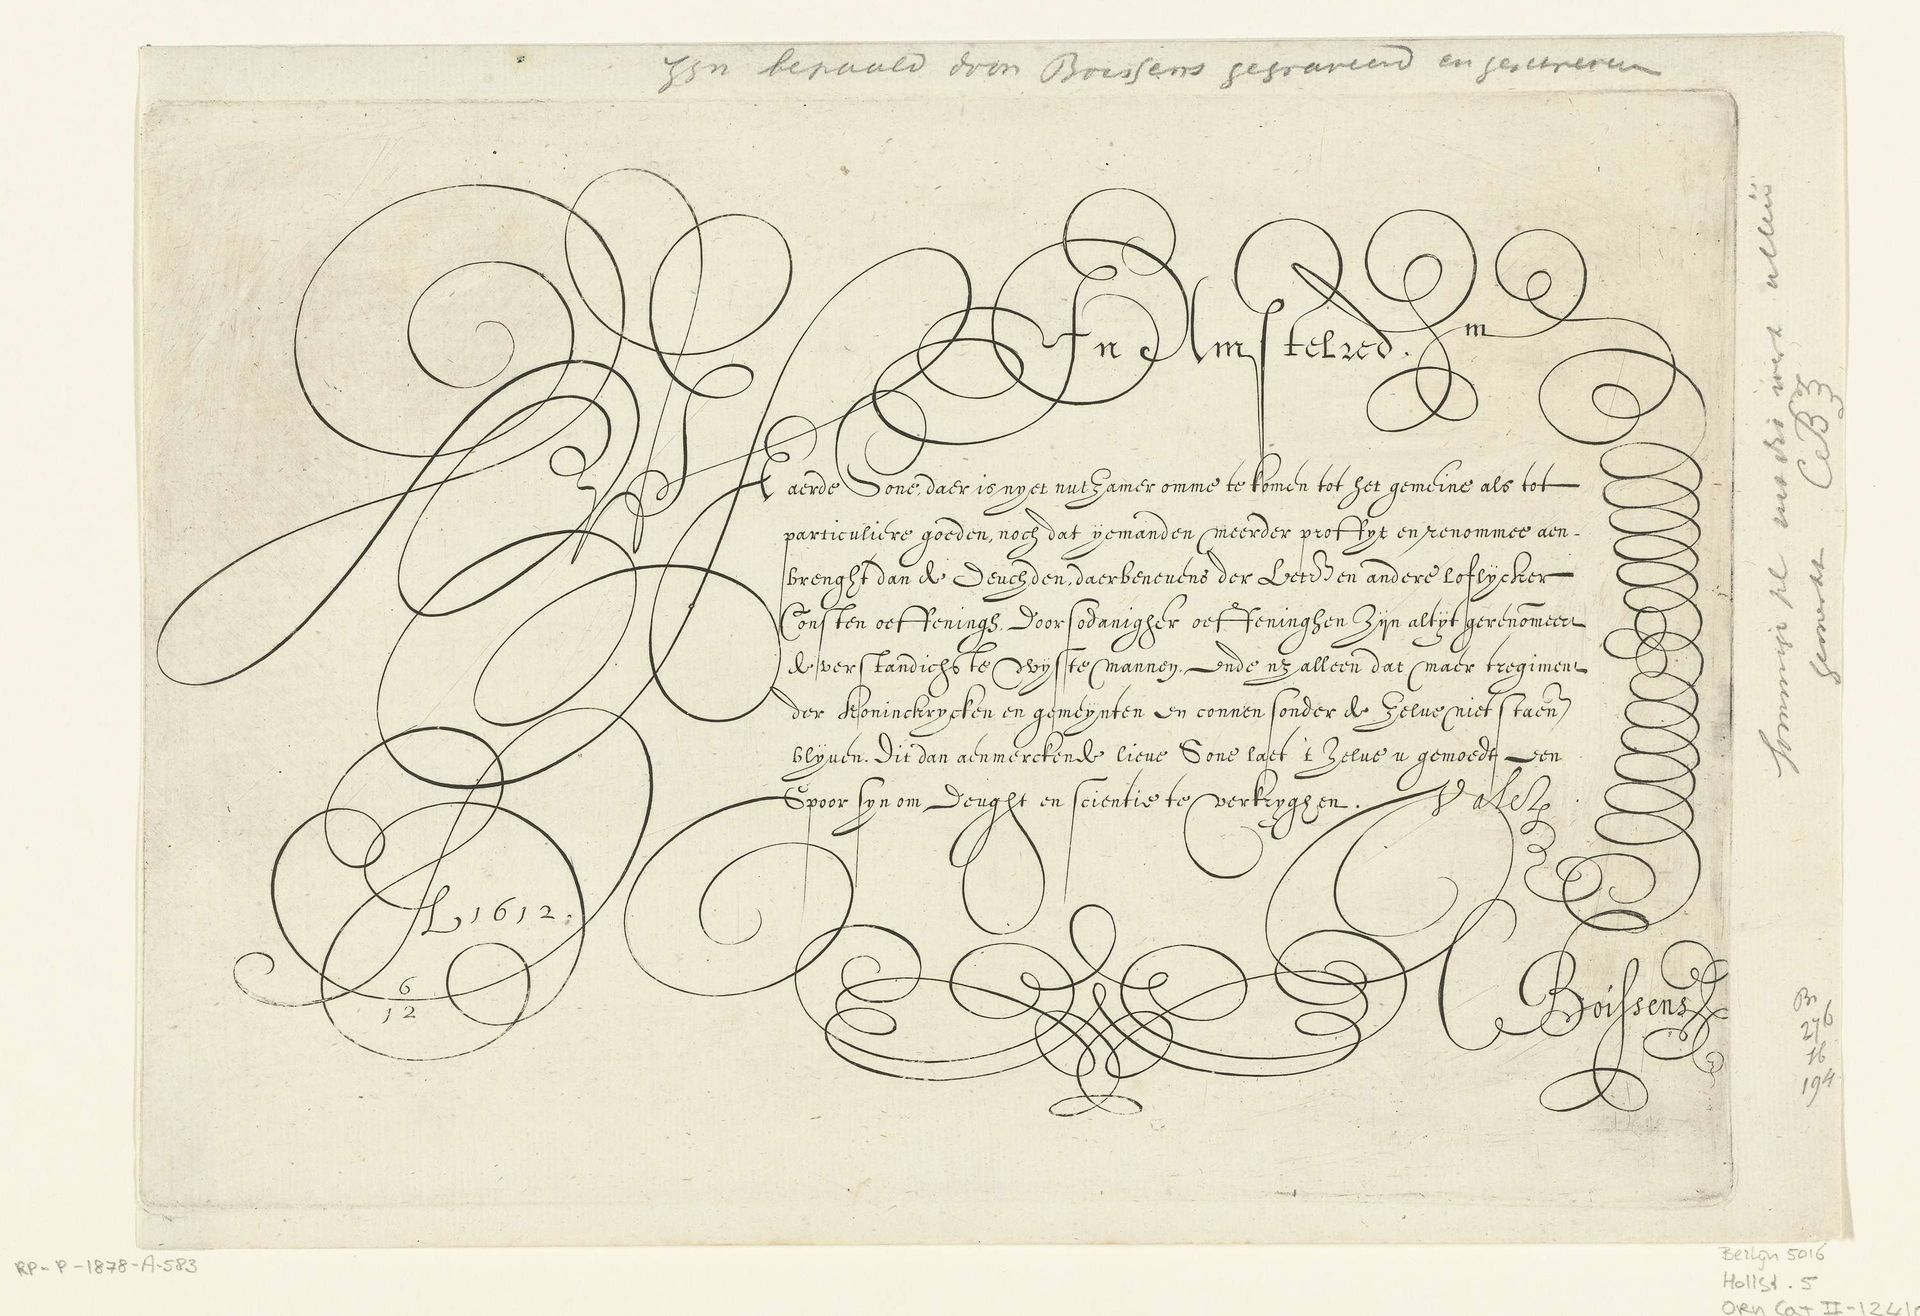 zyn bepaald door Boissens gegraveerd en geschreven
In Amstelred. m
Waerde Sone, daer is nyet nutzamer omme te komen tot het gemeine als tot
particuliere goeden, noch dat yemanden meerder proffyt en renommee aen-
brenght dan de Deuchden, daerbenevens der Lett. en andere loflycker
Consten oeffeningh. Door sodanigher oeffeninghen Zijn altyt gerenōmeert
de verstandichste wyste Mannen. Ende nz alleen dat maer tregiment
der Koninckrycken en gemeynten en connen sonder de Zelve niet staen
blyven. Dit dan aenmerckende lieve Sone laet 't Zelve u gemoedt een
Spoor syn om Deught en scientie te verkryghen. Vale
1612.
6
12
C Boissens
CeBZ
gemerkt
Br
276
16
194
RP-P-1878-A-583
Berlijn 5016
Hollst. 5
Orn Cat II-